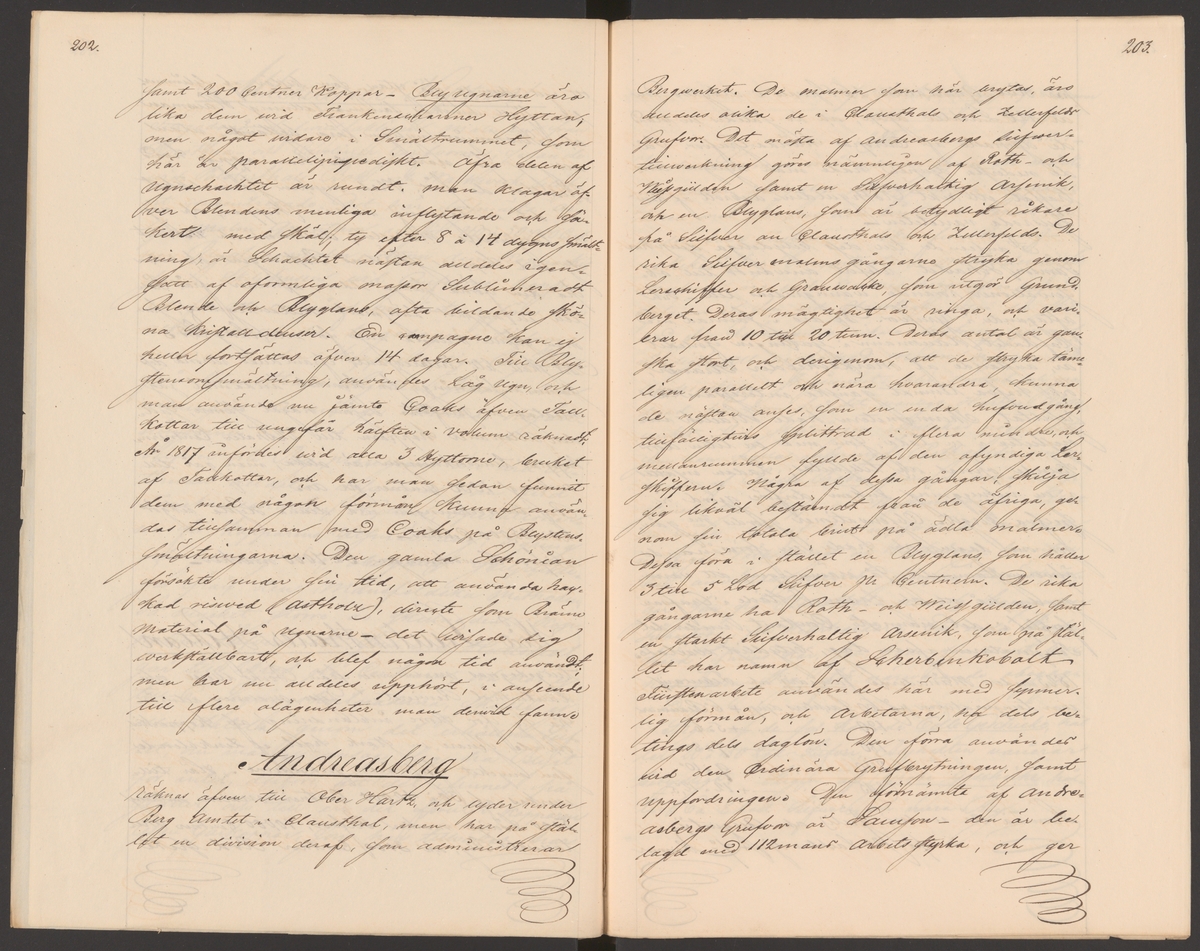 202.
samt 200 Centner Koppar – Blyugnarne äro
lika dem wid Frankenscharner Hyttan,
men något widare i Smältrummet, som
här är parallelipipediskt. Öfra delen af
ugnschachtet är rundt. man klagar öf-
ver Blendens menliga inflytande och sä-
kert med skäl; ty efter 8 à 14 dygns smält-
ning, är Schachtet nästan alldeles igen-
satt af oformliga massor Sublimeradt
Blende och Blyglans, ofta bildande skö-
na Kristall druser. En campagne kan ej
heller fortsättas öfver 14 dagar. Till Bly-
stensomsmältning, användes Låg ugn, och
man använde nu jämte Coaks äfven Tall-
kottar till ungefär hälften i volum räknadt.
År 1817 infördes wid alla 3 Hyttorne, bruket
af Tallkottar, och har man sedan funnit
dem med någon förmån kunna använ-
das tillsamman med Coaks på Blystens
smältningarna. Den gamla Schönian
försökte under sin tid, att använda hac-
kad risved (Astholz), direkte som Bräne
Material på Ugnarne – det wisade sig
werkställbart, och blef någon tid användt,
men har nu alldeles upphört, i anseende
till flere olägenheter man dervid fann.
Andreasberg
räknas äfven till Ober Hartz, och lyder under
Berg Amtet i Clausthal, men har på stäl-
let en division deraf, som administrerar
203.
Bergwerket. De malmer som här brytas, äro
alldeles olika de i Clausthals och Zellerfelds
Grufvor. Det mästa af Andreasbergs Silfwer-
tillwerkning göres nämnligen af Roth- och
Weissgülden samt en Silfverhaltig Arsenik,
och en Blyglans, som är betydligt rikare
på Silfver än Clausthals och Zellerfelds. De
rika Silfver malmsgångarne stryka genom
Lerschiffer och Grauwacke, som utgör Grund
berget. Deras mägtighet är ringa, och vari-
erar från 10 till 20 tum. Deras antal är gan-
ska stort, och derigenom, att de stryka täme-
ligen parallelt och nära hvarandra, kunna
de nästan anses, som en enda hufvudgång,
tillfälligtvis splittrad i flera mindre, och
mellanrummen fyllde af den ofyndiga Ler-
skiffern. Några af dessa gångar skilja
sig likväl bestämdt från de öfriga, ge-
nom sin totala brist på ädla malmer.
Dessa föra i stället en Blyglans, som håller
3 till 5 Lod Silfver pr Centnern. De rika
gångarne ha Roth- och Weissgülden, samt
en starkt Silfverhaltig Arsenik, som på stäl-
let har namn af Scherbenkobolt
arbete användes här med synner-
lig förmån, och Arbetarna, ha dels be-
tings dels daglön. Den förra användes
wid den Ordinära Grufbrytningen, samt
uppfordringen. Den förnämste af Andre-
asbergs Grufvor är Samson – den är be-
lagd med 112 mans Arbetsstyrka, och ger